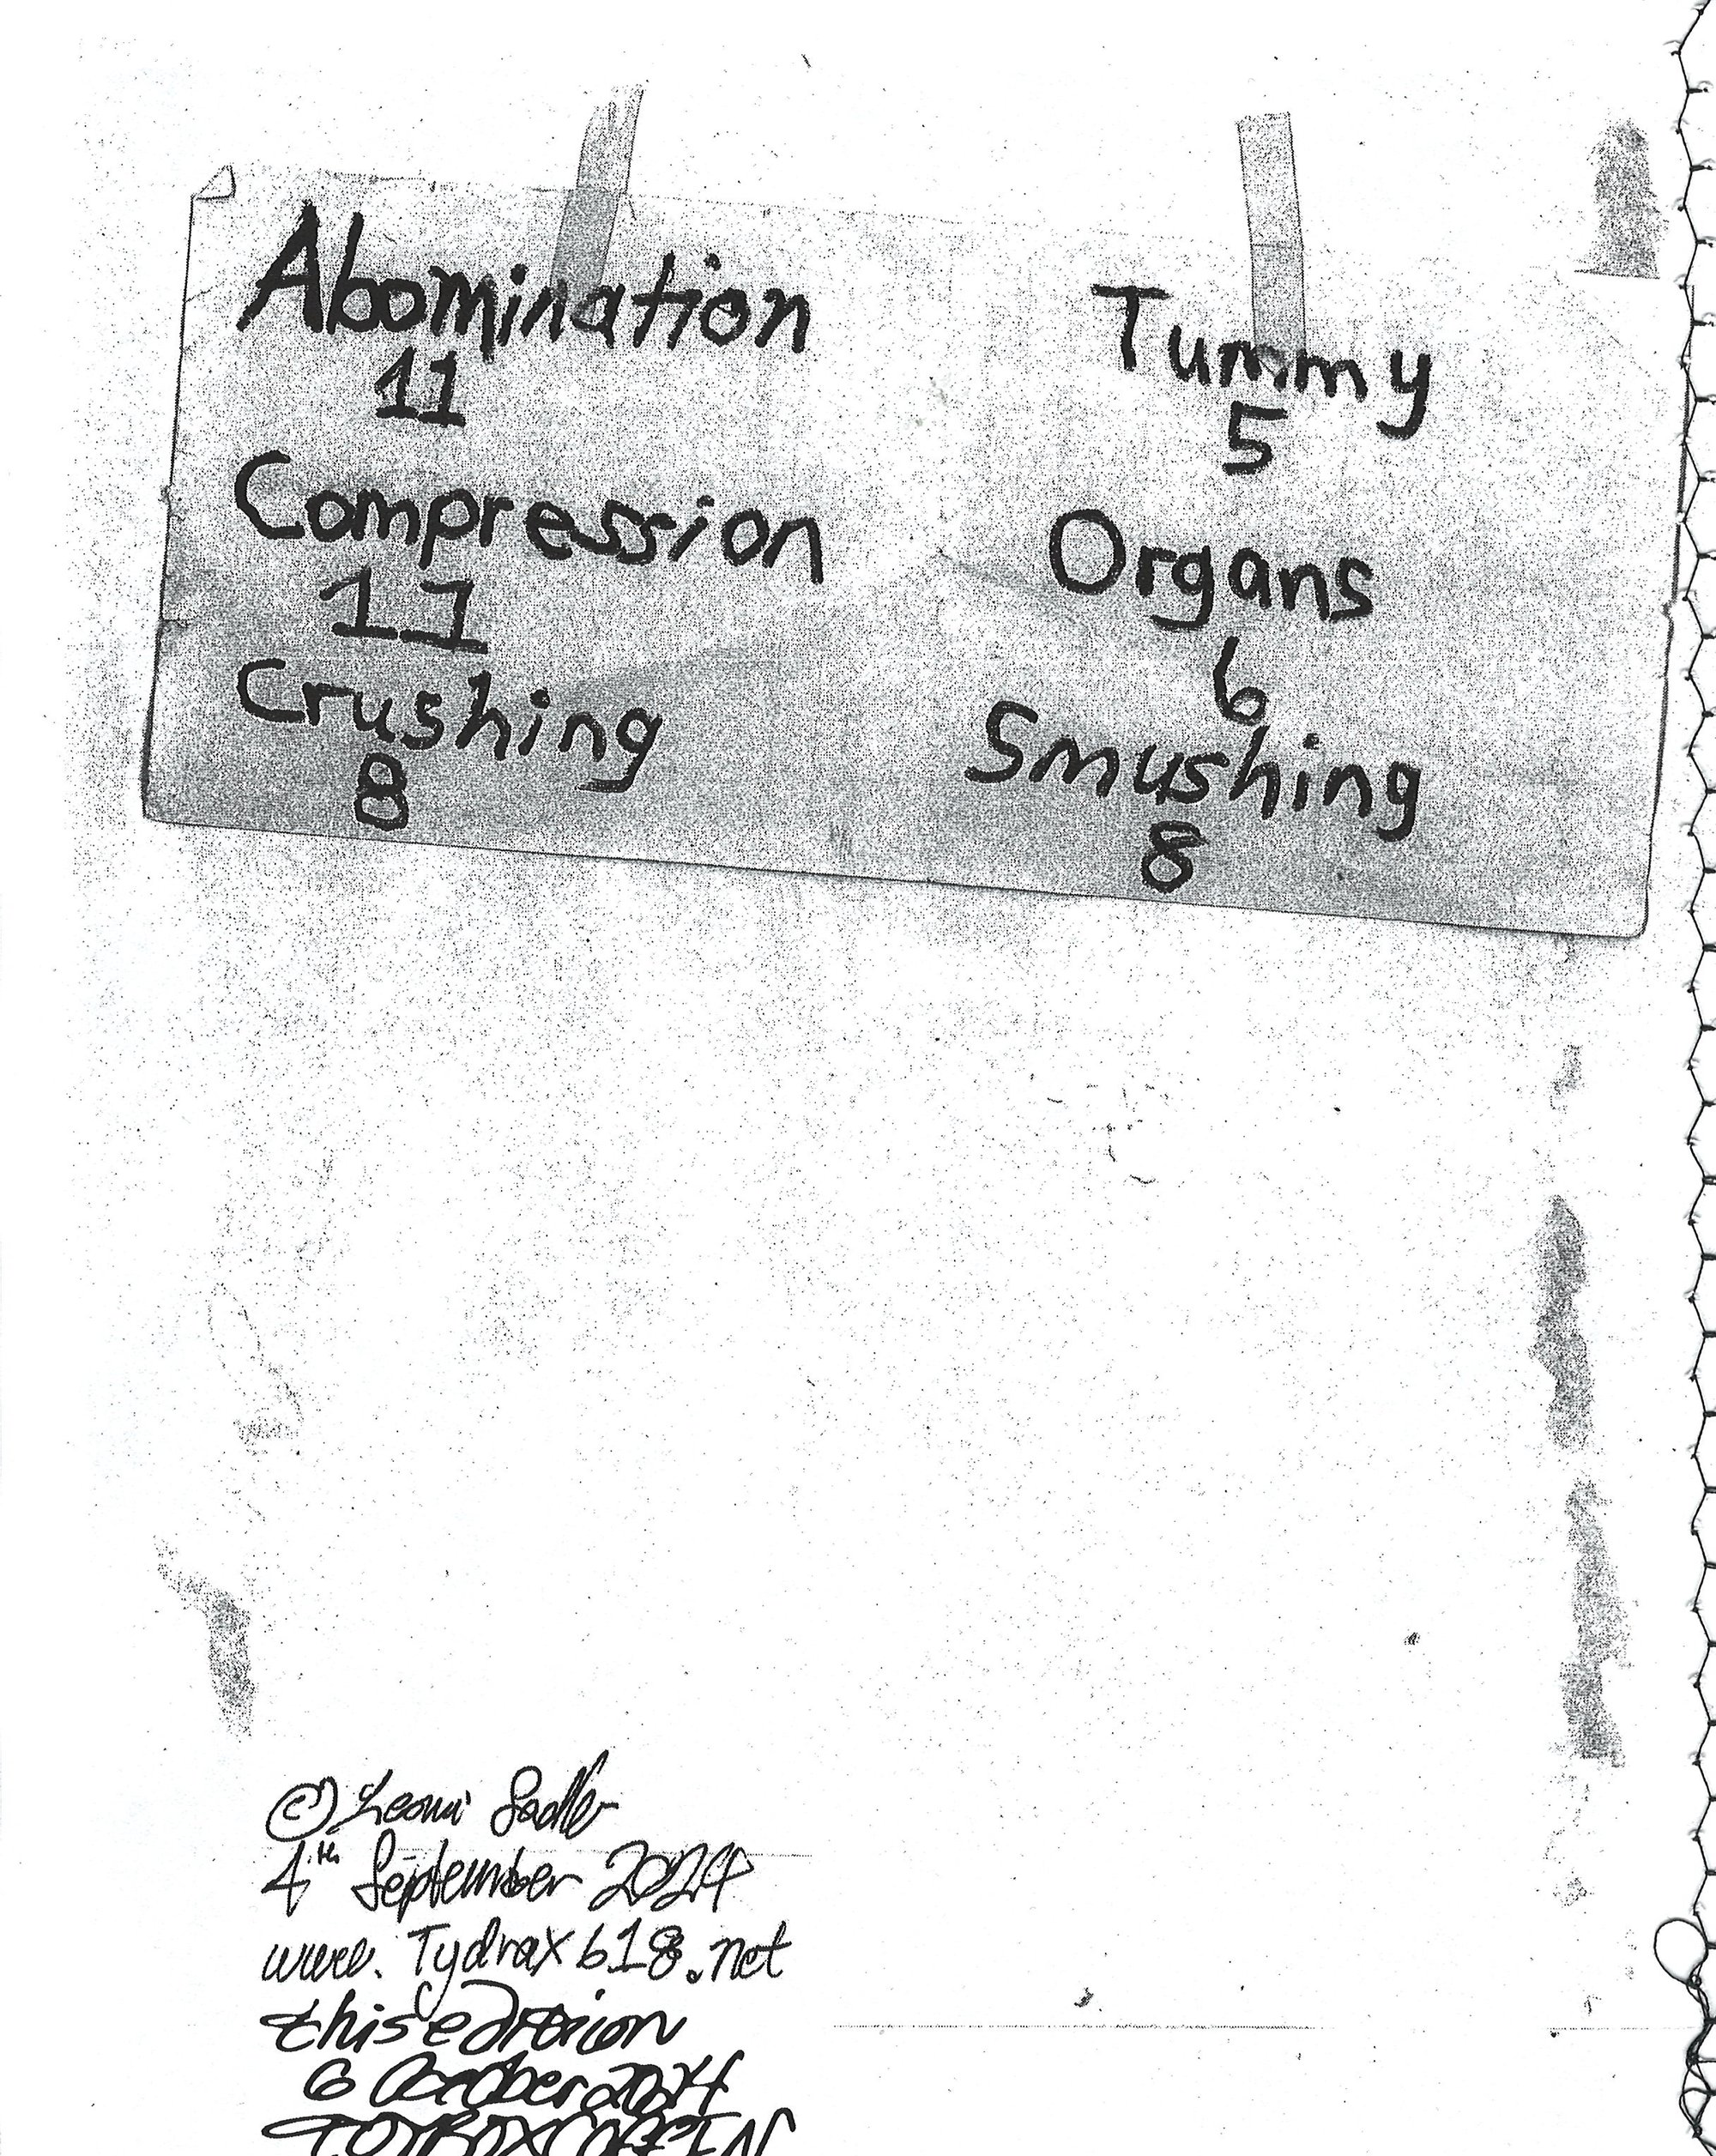 Abomination
11
Compression
11
Crushing
8
Tummy
5
Organs
6
Smushing
8
© Leomi Sadler
4th September 2024
www.Tydrax618.net
this edition
6 October 2024
TOYBOX COFFIN